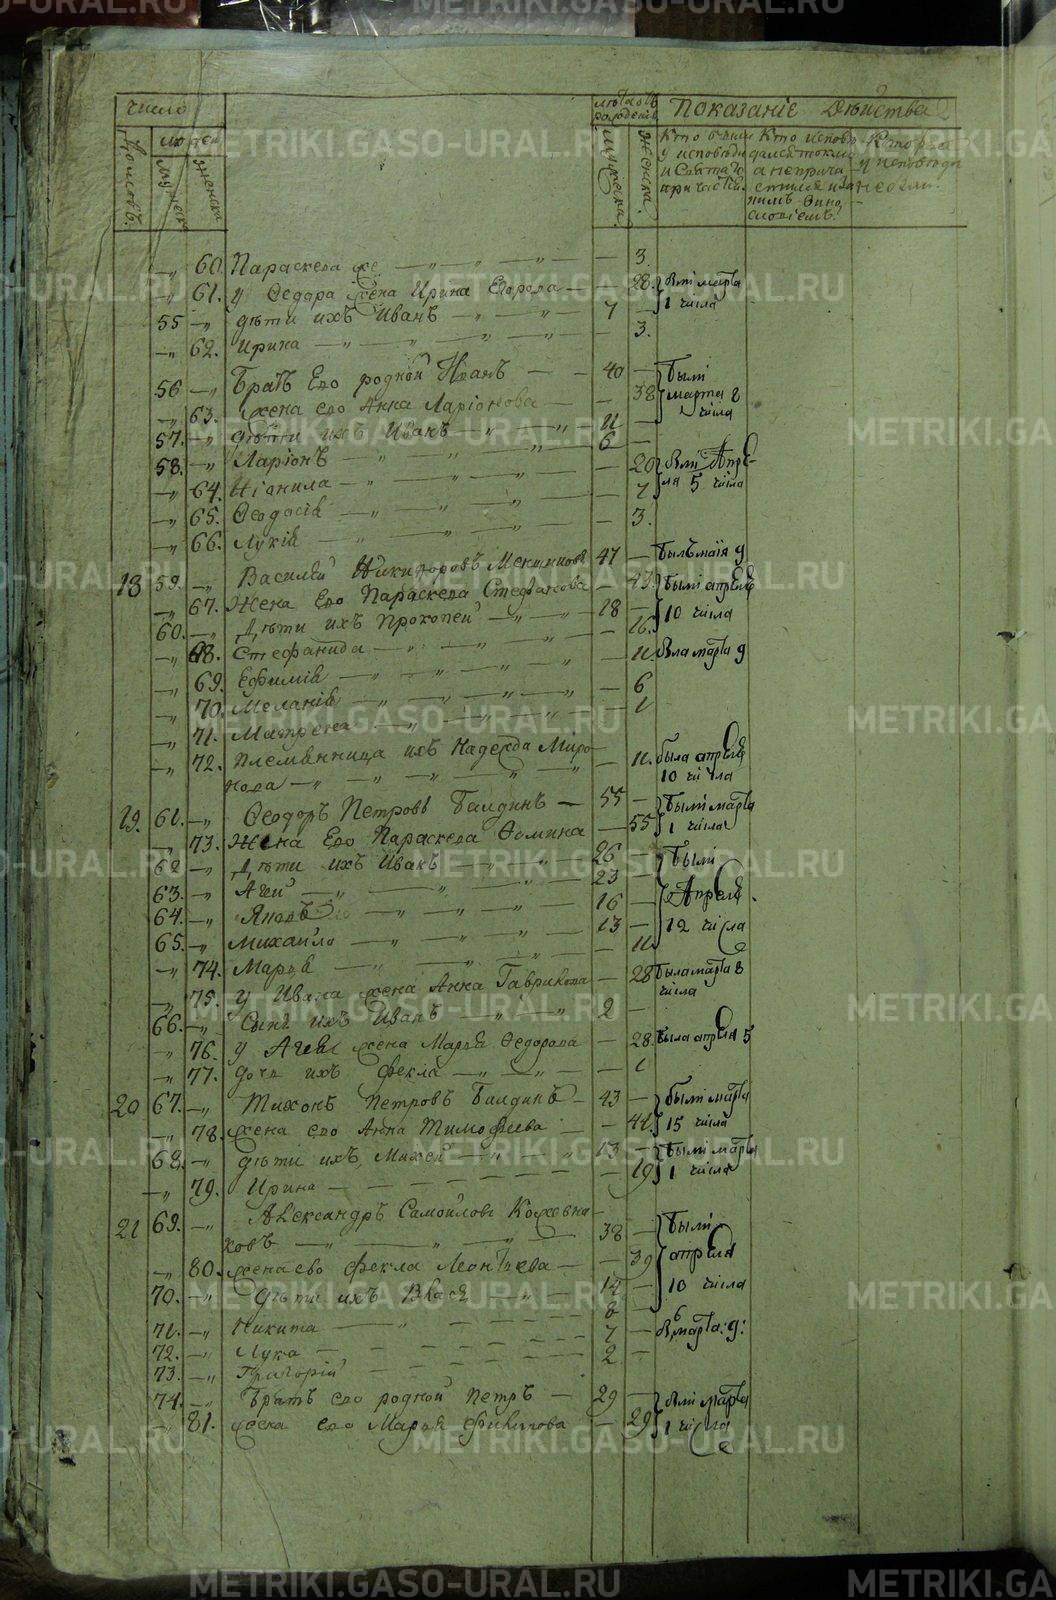 Число
лѣта отъ рожденія
Показаніе Дѣйства
людей
Домовъ.
мужеска
женска
мужеска.
женска.
Кто были у исповѣди и Святаго причастія.
Кто исповѣдался токмо а не причастился и за какимъ винословіемъ.
Которые у исповѣди не были.
60. Параскева 3.
61. У Ѳедора жена Ирина Егорова 28. были марта 1 числа
55 дѣти ихъ Иванъ 7
62. Ирина 3.
56 Братъ Его родной Иванъ 40 Были марта 8 числа
63. жена его Анна Ларіонова 38
57. дѣти ихъ Иванъ 11
58. Ларіонъ 6
64. 20 были Апреля 5 числа
65. Ѳеодосія 7
66. Лукія 3.
18 59. Василей Никифоровъ 47 Былъ мая 9
67. Жена Его Параскева Стефанова 47. Были апреля 10 числа
60. Дѣти ихъ Прокопей 18
68. Стефанида 16.
69. Ефимія 11. была марта 9
70. Меланія 6
71. Матрена 1
72. Племянница ихъ Надежда Миро-
нова 11. была апреля 10 числа
19. 61. Ѳеодоръ Петровъ Балдинъ 55 Были марта 1 числа
73. Жена Его Параскева Ѳомина 55
62 Дѣти ихъ Иванъ 26 Были Апреля 12 числа
63. Агей 23
64. Яковъ 16
65. Михайло 13
74. Марія 11
75. У Ивана жена Анна Гаврилова 28 Была марта 8 числа
66. Сынъ ихъ Иванъ 2
76. У Агея жена Марья Ѳедорова 28. Была апреля 5
77. дочь ихъ Фекла 1
20 67. Тихонъ Петровъ Балдинъ 43 были марта 15 числа
78. жена его Анна Тимофеева 41
68. дѣти ихъ, Михей 13 Были марта 1 числа
79. Ирина 19
21 69. Александръ Самойловъ Кожевни-
ковъ 38 Были апреля 10 числа
80. жена ево Фекла Леонтьева 39
70. дѣти ихъ Власъ 12
71. Никита 8
72. Лука 7
73. Григорій 2
74. Братъ его родной Петръ 29 были марта 1 числа
81. жена его Марья Филипова 29
METRIKI.GASO-URAL.RU